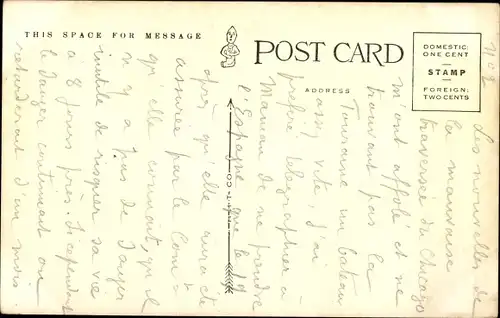 THIS SPACE FOR MESSAGE
POST CARD
ADDRESS
DOMESTIC:
ONE CENT
STAMP
FOREIGN:
TWO CENTS
Les nouvelles de
la mauvaise
traversée du Chicago
m'ont affolé et ne
trouvant pas la
Touraine un bateau
assez vite j'ai
préféré télégraphier à
Maman de ne prendre
l'Espagne que le 19
après qu'elle aura été
assurée par le Com
qu'elle connait, qu'il
n'y a pas de danger
inutile de risquer sa vie
à 8 jours près. Si cependant
le danger continuait on
retarderait d'un mois.